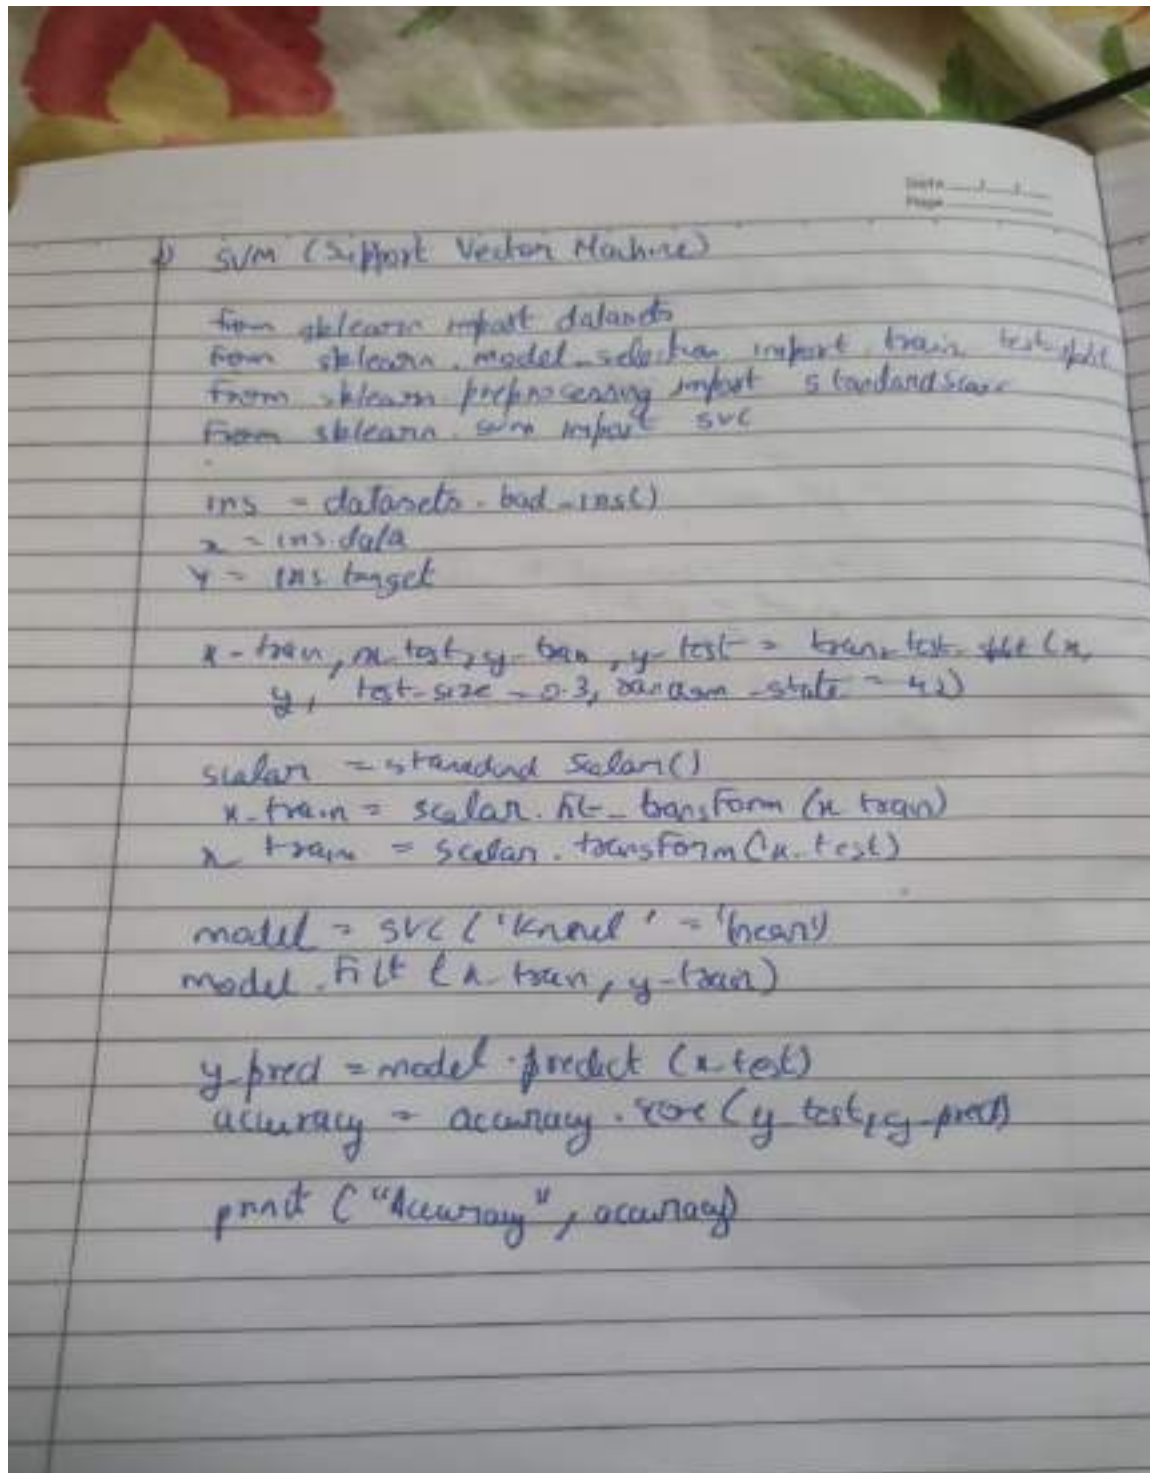 Date ___/___/___
Page
1) SVM (Support Vector Machine)
from sklearn import datasets
from sklearn.model_selection import train_test_split
from sklearn preprocessing import standardScalar
from sklearn.svm import svc
iris = datasets.load_iris()
x = iris.data
y = iris target
x-train, x_test, y-train, y-test = train_test_split (x,
y, test-size = 0.3, random_state = 42)
scalar = standard Scalar()
x-train = scalar.fit_transform (x train)
x train = scalar.transform (x_test)
model = SVC ('Kernel' = 'linear')
model.fit (x-train, y-train)
y-pred = model.predict (x_test)
accuracy = accuracy.score (y_test, y-pred)
print ("Accuracy", accuracy)